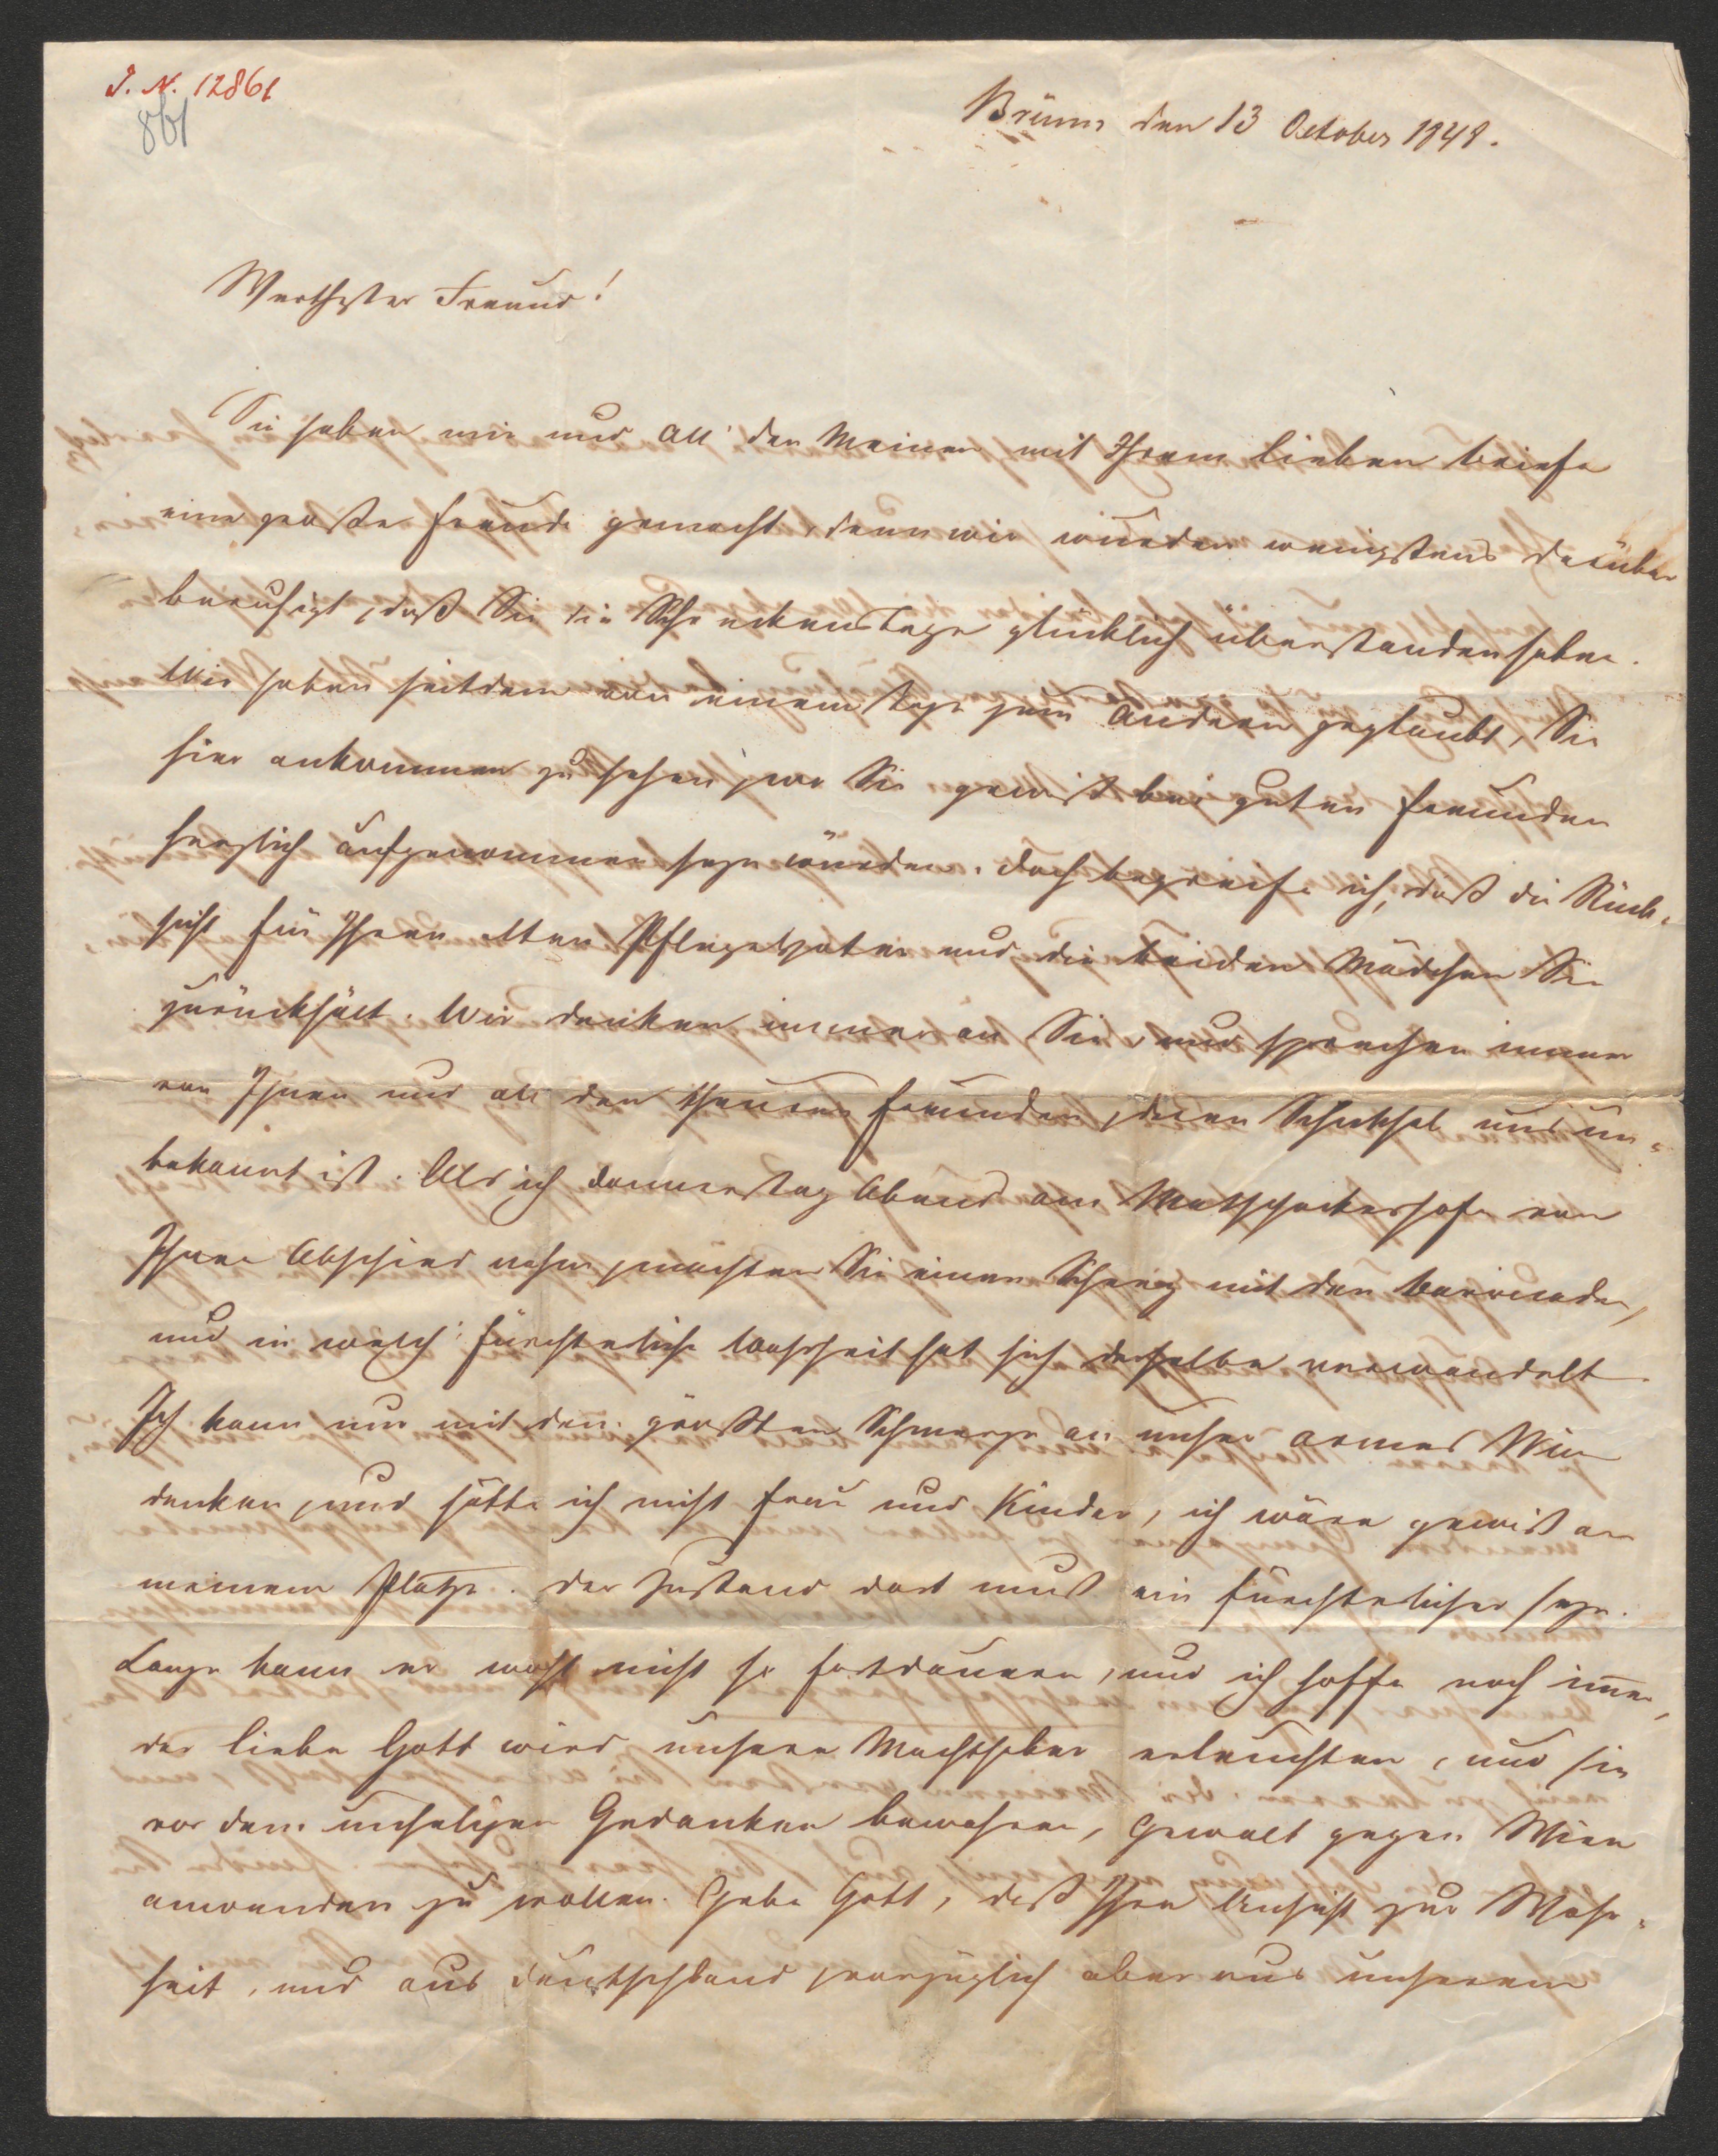 I. N. 12861
861
Brünn den 13 October 1848.
Werthester Freund!
Sie haben mir und all' den Meinen mit Ihrem lieben Briefe
eine große Freude gemacht, denn wir wurden wenigstens darüber
beruhigt, daß Sie die Schreckenstage glücklich überstanden haben.
Wir haben seitdem von einem Tage zum Andern geglaubt, Sie
hier ankommen zu sehen, wo Sie gewiß bei guten Freunden
herzlich aufgenommen seyn würden. Doch begreife ich, daß die Rück-
sicht für Ihren alten Pflegevater und die beiden Mädchen Sie
zurückhält. Wir denken immer an Sie, und sprechen immer
von Ihnen und all den theuren Freunden, deren Schicksal uns un-
bekannt ist. Als ich Donnerstag Abend am Matschackerhofe von
Ihnen Abschied nahm, machten Sie einen Scherz mit den Barricaden,
und in welch' fürchterliche Wahrheit hat sich derselbe verwandelt.
Ich kann nur mit dem größten Schmerze an unser armes Wien
denken, und hätte ich nicht Frau und Kinder, ich wäre gewiß an
meinem Platze. Der Zustand dort muß ein fürchterlicher seyn.
Lange kann er wohl nicht so fortdauern, und ich hoffe noch immer,
der liebe Gott wird unsere Machthaber erleuchten, und sie
vor dem unseligen Gedanken bewahren, Gewalt gegen Wien
anwenden zu wollen. Gebe Gott, daß Ihre Ansicht zur Wahr-
heit, und aus Deutschland, vorzüglich aber aus unserem